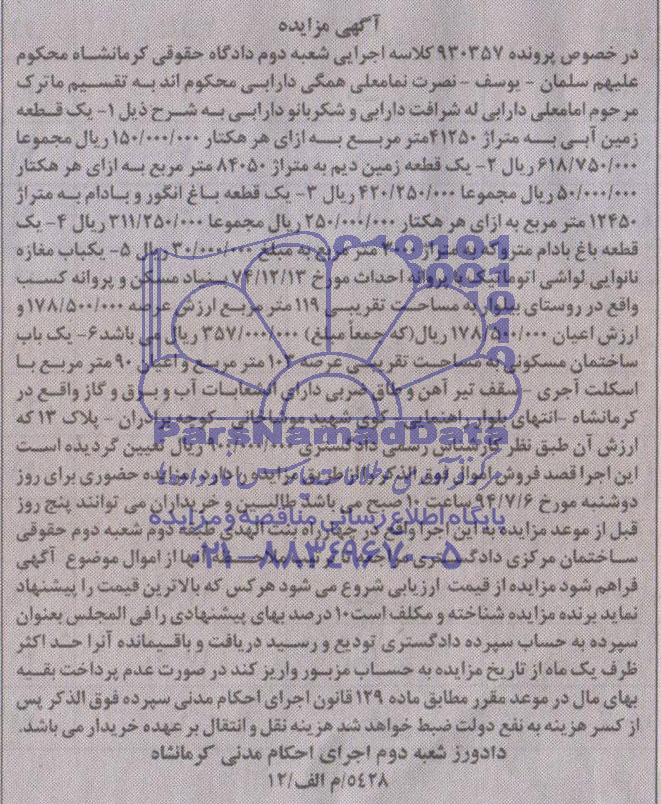 آگهی مزایده
در خصوص پرونده ۹۳۰۳۵۷ کلاسه اجرایی شعبه دوم دادگاه حقوقی کرمانشاه محکوم
علیهم سلمان - یوسف - نصرت نمامعلی همگی دارابی محکوم اند به تقسیم ماترک
مرحوم امامعلی دارابی له شرافت دارابی و شکربانو دارابی به شرح ذیل ۱- یک قطعه
زمین آبی به متراژ ۴۱۲۵۰متر مربع به ازای هر هکتار ۱۵۰/۰۰۰/۰۰۰ ریال مجموعا
۶۱۸/۷۵۰/۰۰۰ ریال ۲- یک قطعه زمین دیم به متراژ ۸۴۰۵۰ متر مربع به ازای هر هکتار
۵۰/۰۰۰/۰۰۰ ریال مجموعا ۴۲۰/۲۵۰/۰۰۰ ریال ۳- یک قطعه باغ انگور و بادام به متراژ
۱۲۴۵۰ متر مربع به ازای هر هکتار ۲۵۰/۰۰۰/۰۰۰ ریال مجموعا ۳۱۱/۲۵۰/۰۰۰ ریال ۴- یک
قطعه باغ بادام متروکه به متراژ متر مربع به مبلغ ۳۰/۰۰۰/۰۰۰ ریال ۵- یکباب مغازه
نانوایی لواشی اتوماتیک با پروانه احداث مورخ ۷۴/۱۲/۱۳ بنیاد مسکن و پروانه کسب
واقع در روستای بلوار به مساحت تقریبی ۱۱۹ متر مربع ارزش عرصه ۱۷۸/۵۰۰/۰۰۰ و
ارزش اعیان ۱۷۸/۵۰۰/۰۰۰ ریال(که جمعاً مبلغ) ۳۵۷/۰۰۰/۰۰۰ ریال می باشد ۶- یک باب
ساختمان مسکونی به مساحت تقریبی عرصه ۱۰۳ متر مربع و اعیان ۹۰ متر مربع با
اسکلت آجری سقف تیر آهن و طاق ضربی دارای انشعابات آب و برق و گاز واقع در
کرمانشاه -انتهای بلوار راهنمایی - کوی شهید کوچه برادران - پلاک ۱۳ که
ارزش آن طبق نظر کارشناس رسمی دادگستری ریال تعیین گردیده است
این اجرا قصد فروش اموال فوق الذکر را از طریق مزایده را دارد. مزایده حضوری برای روز
دوشنبه مورخ ۹۴/۷/۶ ساعت ۱۰ صبح می باشد طالبین و خریداران می توانند پنج روز
قبل از موعد مزایده به این اجرا واقع در چهارراه بنت الهدی طبقه دوم شعبه دوم حقوقی
ساختمان مرکزی دادگستری از اموال موضوع آگهی
فراهم شود مزایده از قیمت ارزیابی شروع می شود هرکس که بالاترین قیمت را پیشنهاد
نماید برنده مزایده شناخته و مکلف است۱۰ درصد بهای پیشنهادی را فی المجلس بعنوان
سپرده به حساب سپرده دادگستری تودیع و رسید دریافت و باقیمانده آنرا حد اکثر
ظرف یک ماه از تاریخ مزایده به حساب مزبور واریز کند در صورت عدم پرداخت بقیه
بهای مال در موعد مقرر مطابق ماده ۱۲۹ قانون اجرای احکام مدنی سپرده فوق الذکر پس
از کسر هزینه به نفع دولت ضبط خواهد شد هزینه نقل و انتقال بر عهده خریدار می باشد.
دادورز شعبه دوم اجرای احکام مدنی کرمانشاه
۵۴۲۸/م الف/۱۲
ParsNamadData
پایگاه اطلاع رسانی مناقصه و مزایده
۰۲۱-۸۸۳۴۹۶۷۰-۵